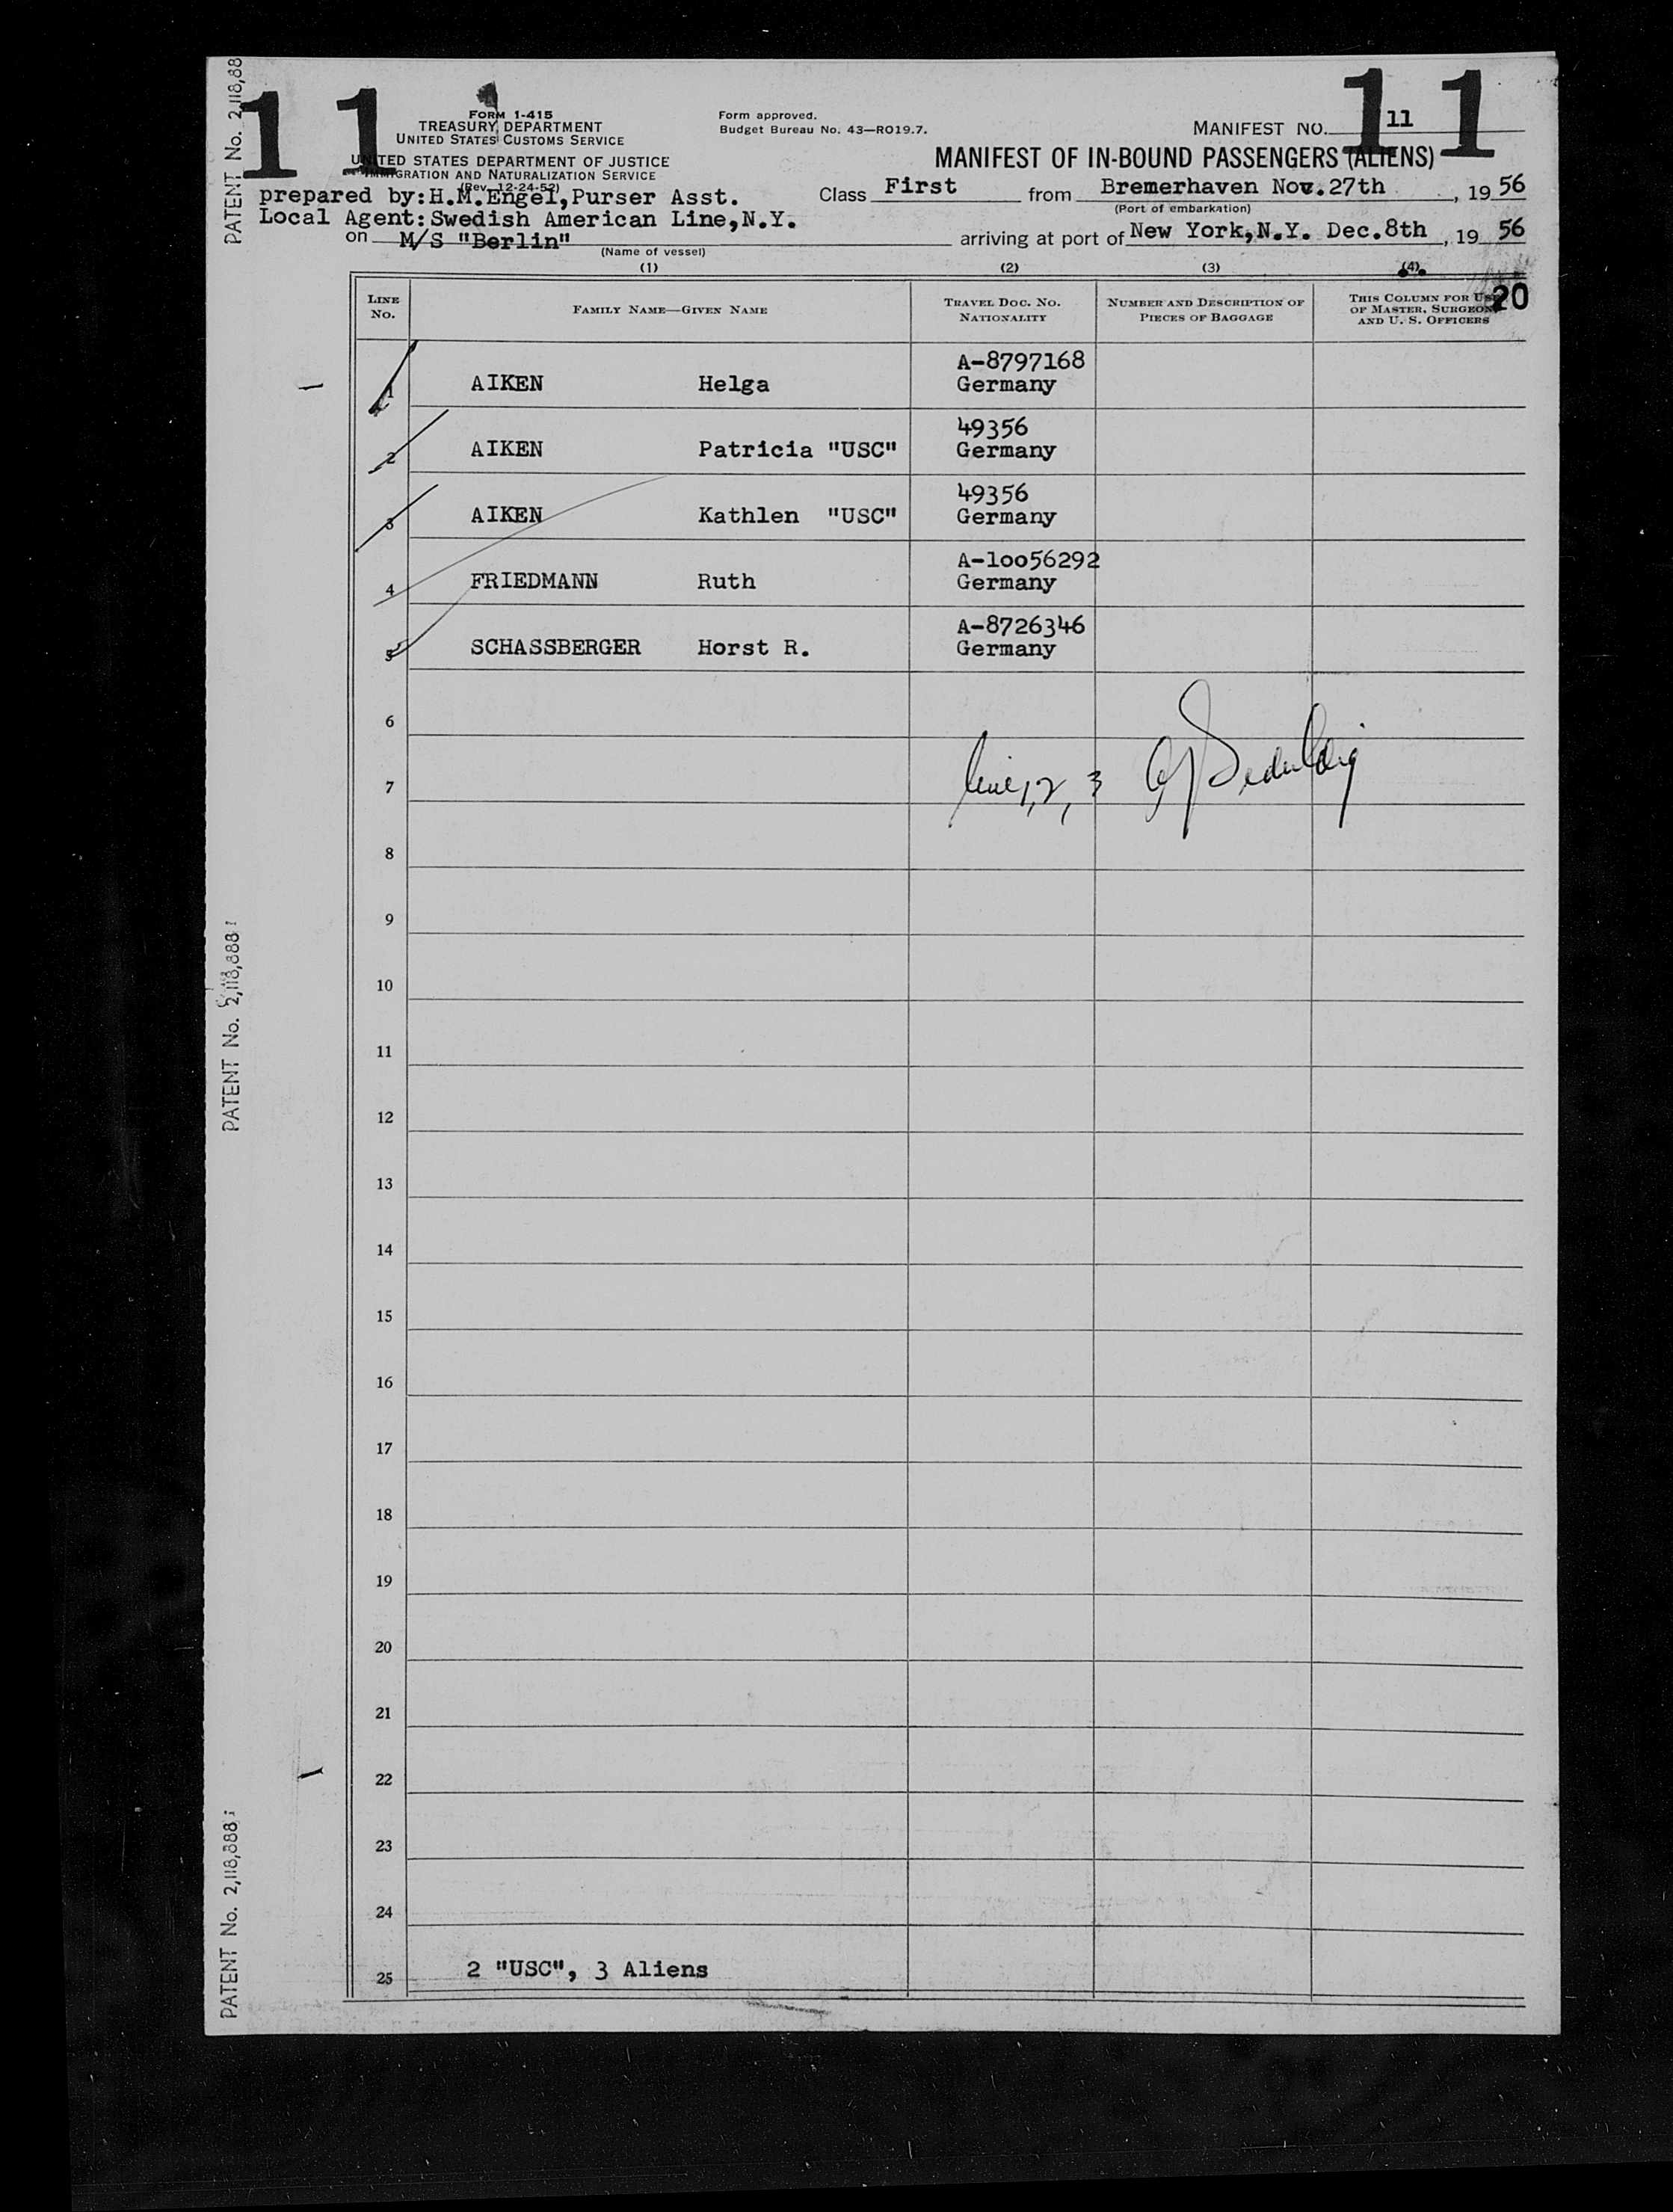 11
11
FORM I-415
TREASURY DEPARTMENT
UNITED STATES CUSTOMS SERVICE
UNITED STATES DEPARTMENT OF JUSTICE
IMMIGRATION AND NATURALIZATION SERVICE
(Rev. 12-24-52)
Form approved.
Budget Bureau No. 43—RO19.7.
MANIFEST NO. 11
MANIFEST OF IN-BOUND PASSENGERS (ALIENS)
prepared by:H.M.Engel,Purser Asst.
Class First from Bremerhaven Nov.27th, 1956
(Port of embarkation)
Local Agent:Swedish American Line,N.Y.
on M/S "Berlin" arriving at port of New York,N.Y. Dec.8th, 1956
(Name of vessel)
(1) (2) (3) (4)
20
LINE No. FAMILY NAME—GIVEN NAME TRAVEL DOC. NO. NATIONALITY NUMBER AND DESCRIPTION OF PIECES OF BAGGAGE THIS COLUMN FOR USE OF MASTER, SURGEON, AND U. S. OFFICERS
A-8797168
1 AIKEN Helga Germany
49356
2 AIKEN Patricia "USC" Germany
49356
3 AIKEN Kathlen "USC" Germany
A-10056292
4 FRIEDMANN Ruth Germany
A-8726346
5 SCHASSBERGER Horst R. Germany
6
line 1, 2, 3
7
8
9
10
11
12
13
14
15
16
17
18
19
20
21
22
23
24
25 2 "USC", 3 Aliens
PATENT No. 2,118,88
PATENT No. 2,118,888
PATENT No. 2,118,888